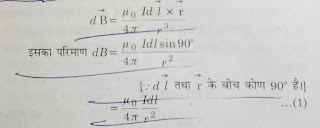 d\vec{B} = \frac{\mu_0}{4\pi} \frac{Id\vec{l} \times \vec{r}}{r^3}
इसका परिमाण dB = \frac{\mu_0}{4\pi} \frac{Idl \sin 90°}{r^2}
[∵ d\vec{l} तथा \vec{r} के बीच कोण 90° है।]
= \frac{\mu_0}{4\pi} \frac{Idl}{r^2} ...(1)